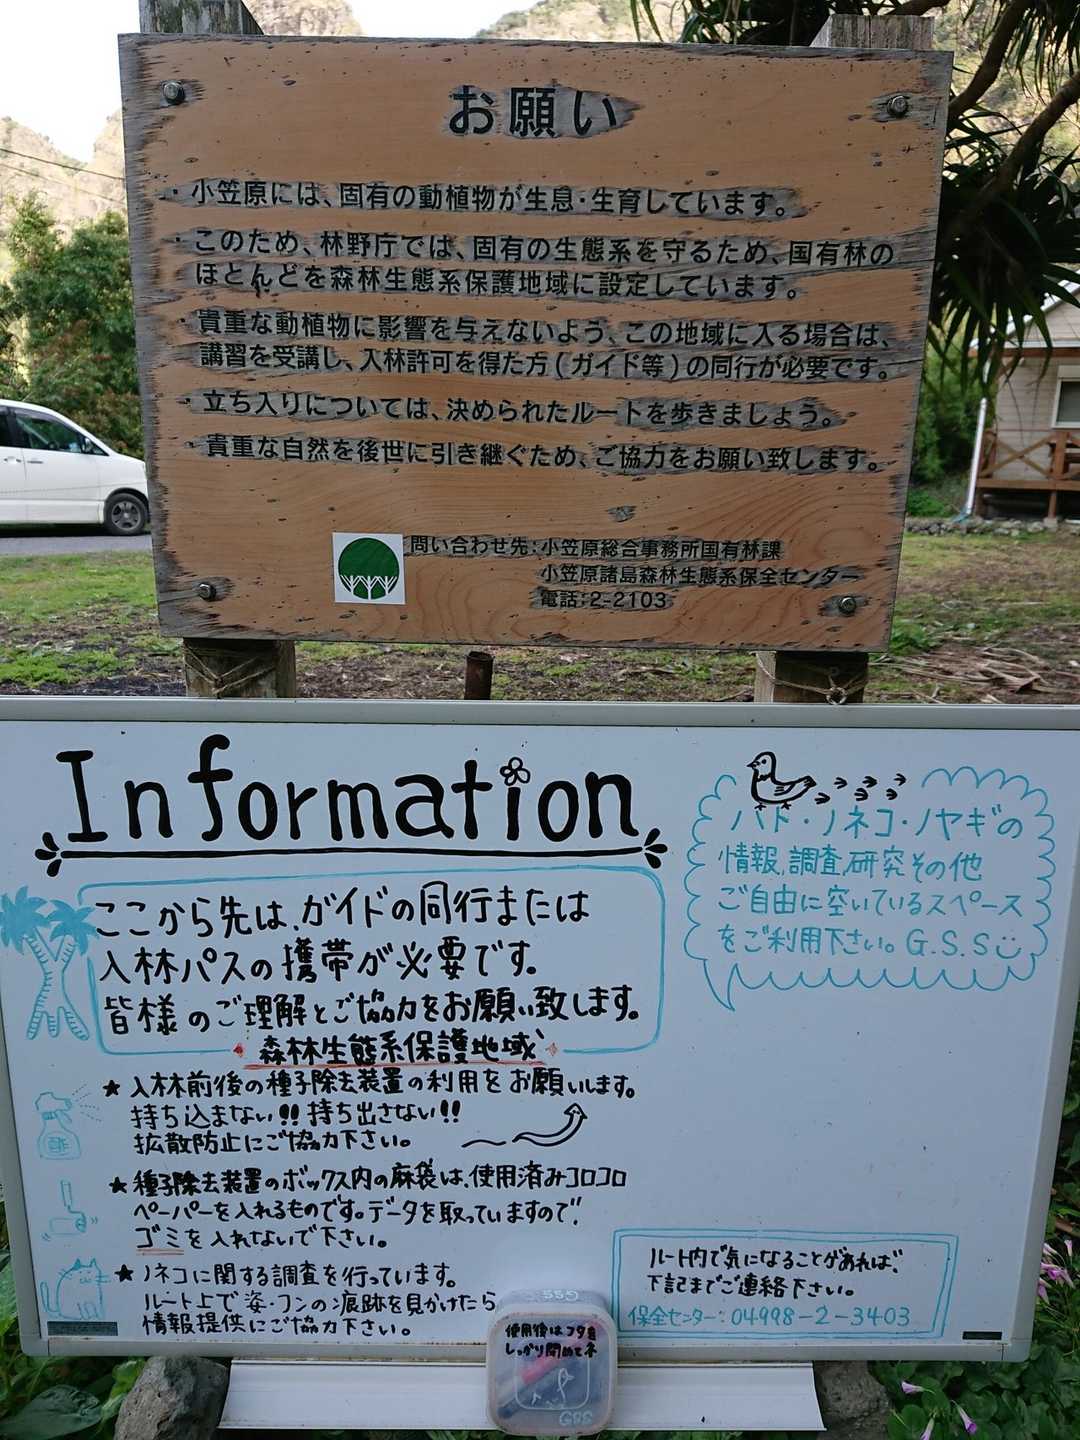 お願い
・小笠原には、固有の動植物が生息・生育しています。
・このため、林野庁では、固有の生態系を守るため、国有林の
ほとんどを森林生態系保護地域に設定しています。
・貴重な動植物に影響を与えないよう、この地域に入る場合は、
講習を受講し、入林許可を得た方(ガイド等)の同行が必要です。
・立ち入りについては、決められたルートを歩きましょう。
・貴重な自然を後世に引き継ぐため、ご協力をお願い致します。
問い合わせ先:小笠原総合事務所国有林課
小笠原諸島森林生態系保全センター
電話:2-2103
Information
ここから先は、ガイドの同行または
入林パスの携帯が必要です。
皆様のご理解とご協力をお願い致します。
森林生態系保護地域
★入林前後の種子除去装置の利用をお願いします。
持ち込まない!!持ち出さない!!
拡散防止にご協力下さい。
★種子除去装置のボックス内の麻袋は、使用済みコロコロ
ペーパーを入れるものです。データを取っていますので、
ゴミを入れないで下さい。
★ノネコに関する調査を行っています。
ルート上で姿・フンの痕跡を見かけたら
情報提供にご協力下さい。
ハト・ノネコ・ノヤギの
情報、調査、研究その他
ご自由に空いているスペース
をご利用下さい。G.S.S
ルート内で気になることがあれば、
下記までご連絡下さい。
保全センター:04998-2-3403
GSS
使用後はフタを
しっかり閉めてネ
GSS